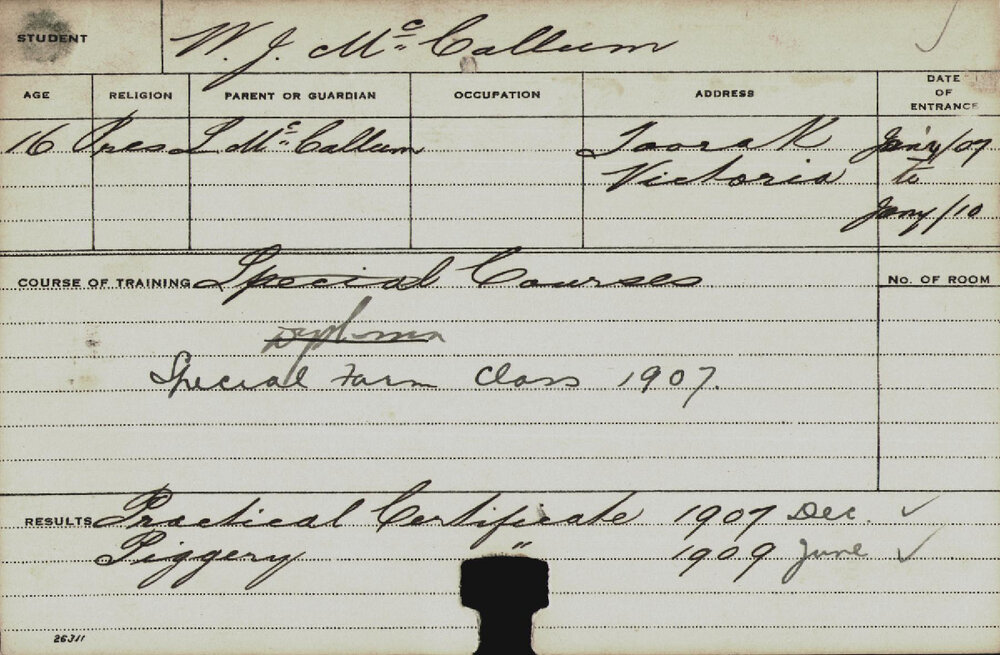 STUDENT W. J. McCallum
AGE RELIGION PARENT OR GUARDIAN OCCUPATION ADDRESS DATE OF ENTRANCE
16 Pres L McCallum Toorak Jan'y/07
Victoria to
Jany/10
COURSE OF TRAINING Special Courses No. OF ROOM
Diploma
Special Farm Class 1907.
RESULTS Practical Certificate 1907 Dec. ✓
Piggery " 1909 June ✓
26311